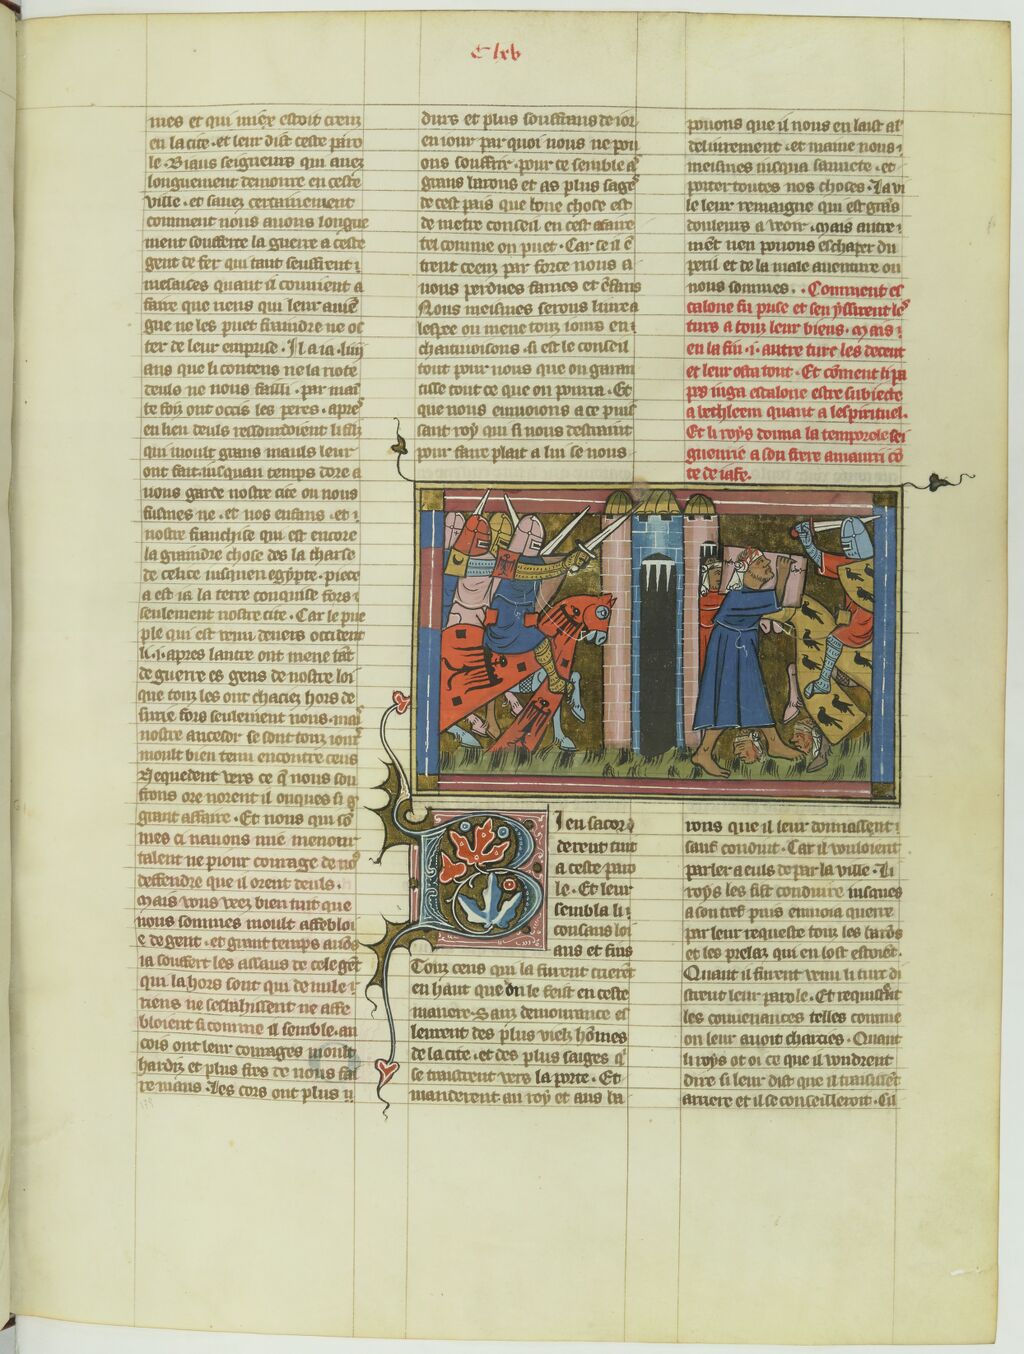 C lxv
mes et qui miex estoit creuz
en la cite · et leur dist ceste paro
le · Biaus seigneurs qui avez
longuement demoure en ceste
ville · et savez certainement
comment nous avons longue
ment soufferte la guerre a ceste
gent de fer qui tant seuffrent
mesaises quant il convient a
faire que riens qui leur
gue ne les puet fraindre ne oc
ter de leur emprise · Il a ia · liiij
ans que li contens ne la note
deuls ne nous failli · par
te foiz ont occis les peres · apres
en lieu deuls ressourdoient li filz
qui moult grans mauls leur
ont fait iusquau temps dore a
vous garde nostre cite ou nous
fusmes ne · et nos enfans · et
nostre franchise qui est encore
la graindre chose des la tharse
de celice iusquen egypte · piece
a est ia la terre conquise fors
seulement nostre cite · Car le pue
ple qui est venu devers occident
li · i · apres lautre ont mene tant
de guerre es gens de nostre loi
que touz les ont chaciez hors de
surie fors seulement nous · mais
nostre ancesor se sont touz iours
moult bien tenu encontre ceus
Requedent vers ce que nous sou
frons ore norent il onques si
grant affaire · Et nous qui so
mes ci navons mie menour
talent ne piour courage de nous
deffendre que il orent deuls ·
Mais vous veez bien tuit que
nous sommes moult affebloi
e de gent · et grant temps avons
ia souffert les assaus de cele gent
qui la hors sont qui de nule
riens ne seslahissent ne affe
bloient si comme il semble · an
cois ont leur courages moult
hardiz et plus fres de nous fai
re maus · Les cors ont plus
durs et plus souffrans de ior
en iour par quoi nous ne pou
ons souffrir · pour ce semble as
grans barons et as plus sages
de cest pais que bone chose est
de metre conseil en cest afaire
tel comme on puet · Car se il en
trent ceenz par force nous a
vons perdues fames et enfans
Nous meismes serons livre a
lespee ou mene touz iours en
chaitivoisons · si est le conseil
tout pour nous que on garan
tisse tout ce que on pourra · Et
que nous envoions a ce puis
sant roy qui si nous destraint
pour faire plait a lui se nous
pouons que il nous en laist al
delivrement · et maine nous
meismes iusqua sauvete · et
porter toutes nos choses · La vi
le leur remaigne qui est grans
douleurs a veoir · Mais autre
ment nen pouons eschaper du
peril et de la male aventure ou
nous sommes · Comment es
calone fu prise et sen yssirent les
turs a touz leur biens · Mais
en la fin · i · autre turc les decent
et leur osta tout · Et comment li pa
pes iuga escalone estre subiecte
a bethleem quant a lespirituel ·
Et li roys donna la temporele sei
gneurie a son frere amaurri co
te de iafe ·
Bien sacor
derent tuit
a ceste paro
le · Et leur
sembla li
consaus loi
aus et fins
Touz ceus qui la furent crierent
en haut que on le feist en ceste
maniere · Sanz demourance es
leurent des plus vielz hommes
de la cite · et des plus saiges qui
se traistrent vers la porte · Et
manderent au roy et aus ba
rons que il leur donnassent
sauf conduit · Car il vouloient
parler a euls de par la ville · Li
roys les fist conduire iusques
a son tref puis envoia querre
par leur requeste touz les barons
et les prelaz qui en lost estoient ·
Quant il furent venu li turc di
strent leur parole · Et requistrent
les couvenances telles comme
on leur avoit charcies · Quant
li roys ot oi ce que il voudrent
dire si leur dist que il traisissent
arriere et il se conseilleroit · Cil